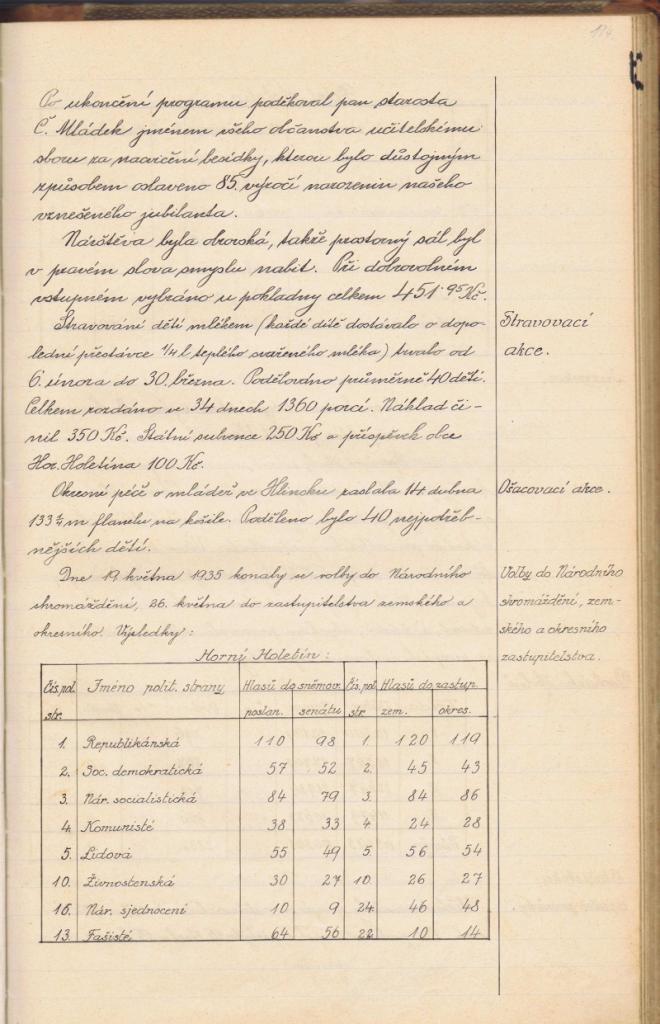 174.
Po ukončení programu poděkoval pan starosta
Č. Mládek jménem všeho občanstva učitelskému
sboru za nacvičení besídky, kterou bylo důstojným
způsobem oslaveno 85. výročí narozenin našeho
vznešeného jubilanta.
Návštěva byla obrovská, takže prostorný sál byl
v pravém slova smyslu nabit. Při dobrovolném
vstupném vybráno u pokladny celkem 451·95 Kč.
Stravování dětí mlékem (každé dítě dostávalo o dopo-
lední přestávce 1/4 l teplého svařeného mléka) trvalo od
6. února do 30. března. Podělováno průměrně 40 dětí.
Celkem rozdáno ve 34 dnech 1360 porcí. Náklad či-
nil 350 Kč. Státní subvence 250 Kč a příspěvek obce
Hor. Holetína 100 Kč.
Stravovací
akce.
Okresní péče o mládež ve Hlinsku zaslala 14 dubna
133 m flanelu na košile. Poděleno bylo 40 nejpotřeb-
nějších dětí.
Ošacovací akce.
Dne 19 května 1935 konaly se volby do Národního
shromáždění, 26. května do zastupitelstva zemského a
okresního. Výsledky:
Volby do Národního
shromáždění, zem-
ského a okresního
zastupitelstva.
Horní Holetín:
Čís. pol. str. Jméno polit. strany Hlasů do sněmov. Čís. pol. str. Hlasů do zastup.
poslan. senátu zem. okres.
1. Republikánská 110 98 1. 120 119
2. Soc. demokratická 57 52 2. 45 43
3. Nár. socialistická 84 79 3. 84 86
4. Komunisté 38 33 4. 24 28
5. Lidová 55 49 5. 56 54
10. Živnostenská 30 27 10. 26 27
16. Nár. sjednocení 10 9 24. 46 48
13. Fašisté 64 56 22. 10 14